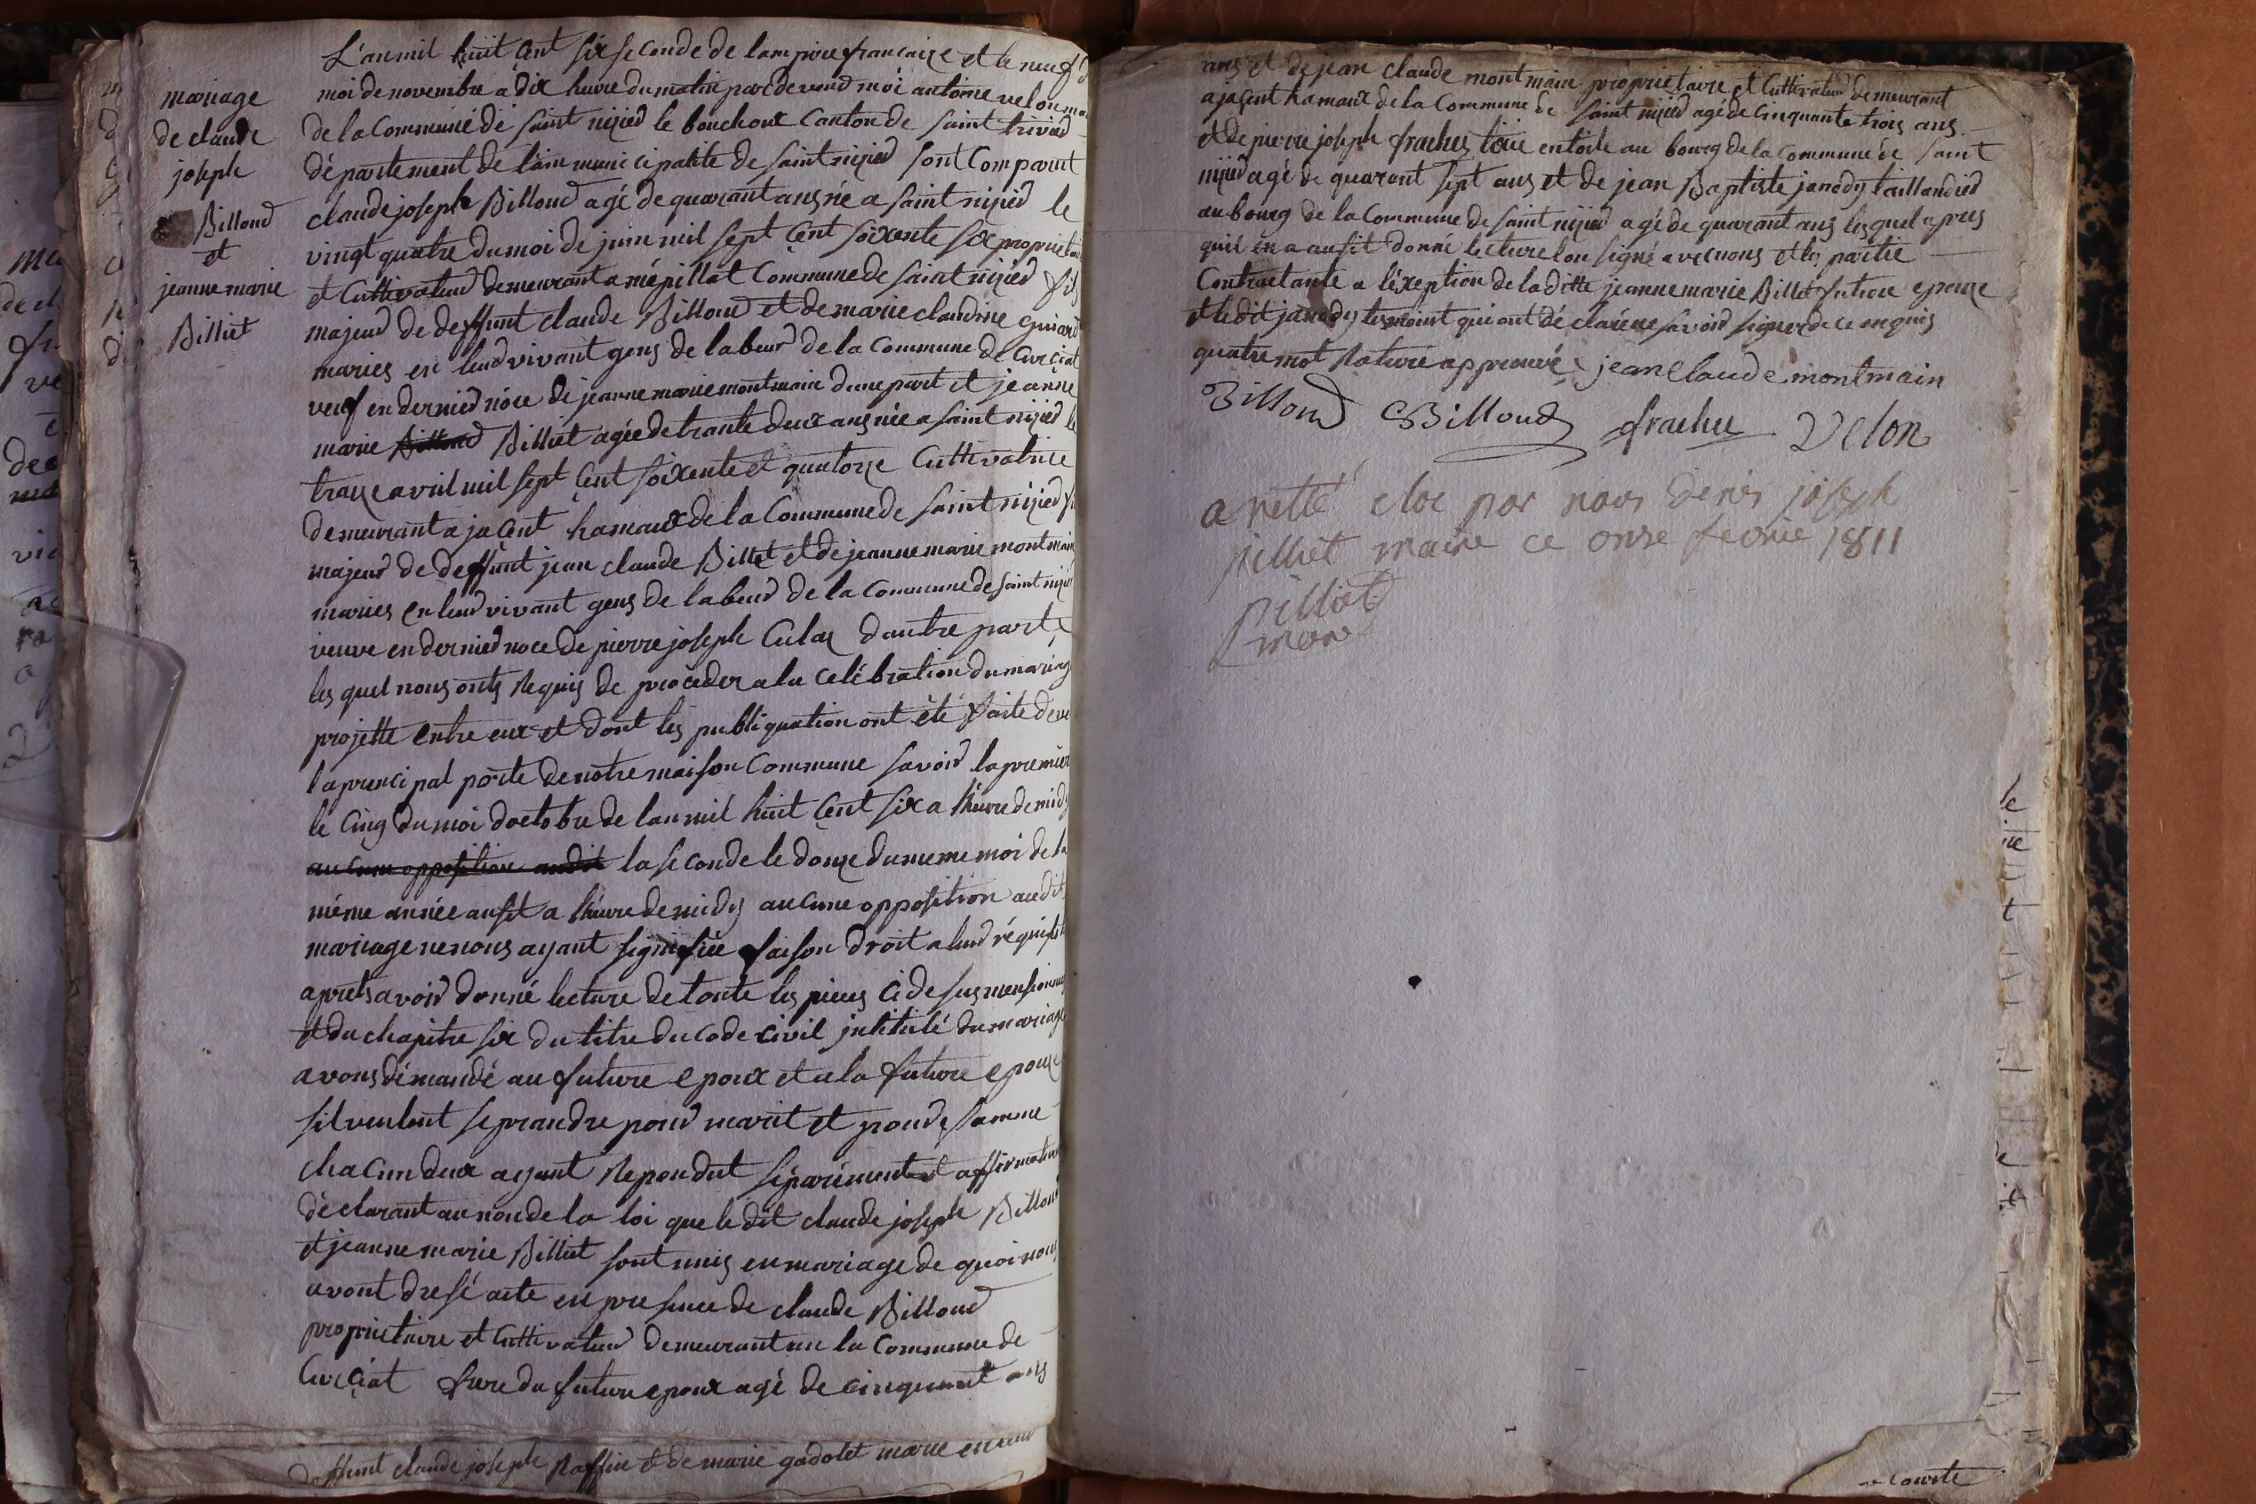 mariage
de claude
joseph
Billoud
et
jeanne marie
Billiet
L'an mil huit cent six seconde de lampire francaise et le neuf
moi de novembre a dix heure du matin pardevend moi antoine velon
de la Commune de saint nizied le bouchoux Canton de saint trivied
département de lain municipalité de saint nizied sont Comparut
claude joseph Billoud agé de quarant ans né a saint nizied le
vingt quatre du moi de juin mil sept cent soixente six
et Cultivateur demeurant a mépillat Commune de saint nizied fils
majeur de deffunt claude Billoud et de marie claudine
maries en leud vivant gens de labeur de la Commune de Curciat
veuf en dernied nóce de jeanne marie montmain dune part et jeanne
marie Billoud Billiet agée de trante deux ans née a saint nizied le
traize avril mil sept cent soixente et quatorze Cultivatrice
demeurant a jacent hameaux de la Commune de saint nizied
majeur de deffunt jean claude Billet et de jeanne marie montmain
maries en leud vivant gens de labeur de la Commune de saint
veuve en dernied noce de pierre joseph Culas dautre part
les quel nous onts Requis de proceder a la celébration du
projette entre eux et dont les publiquation ont été faite
la principal porte de notre maison Commune savoir la premier
le Cinq du moi doctobre de lan mil huit Cent six a lheure de midy
aucune opposition audit la seconde le douze du meme moi de la
même année ausit a lheure de midy aucune opposition audit
mariage ne nous ayant signifiée faison droit a leud
aprets avoir donné lecture de toute les pieces Ci desus
et du chapitre six du titre du code civil intitulé du mariage
avons démandé au future epoux et a la future epouze
sil veulent se prandre pour marit et pour famme
chacun deux ayant Repondut séparément et
déclarant au non de la loi que le dit claude joseph Billoud
et jeanne marie Billiet sont unis en mariage de quoi nous
avont dresé acte en presence de claude Billoud
proprietaire et Cultivateur demeurant en la Commune de
Curciat frere du future epoux agé de cinquant ans
Deffunt claude joseph Raffin et de marie gadolet marie
ans et de jean claude montmain propriétaire et Cultivateur demeurant
a jacent hamaux de la Commune de saint nizied agé de cinquante trois ans
et de pierre joseph frachet en toile au bourg de la Commune de saint
nizied agé de quarant sept ans et de jean Baptiste janody taillandied
au bourg de la Commune de saint nizied agé de quarant ans les quel apres
quil en a ausit donné lecture lon signé avec nous et les partie
Contractante a l'éxeption de la ditte jeanne marie Billet future epouze
et le dit janody temoint qui ont déclaré ne savoir signer de ce requis
quatre mot Rature approuvé jean Claude montmain
Billoud CBilloud frachet Velon
aretté cloc par nous denis joseph
pilliet maire ce onze fevrie 1811
pilliet
maire